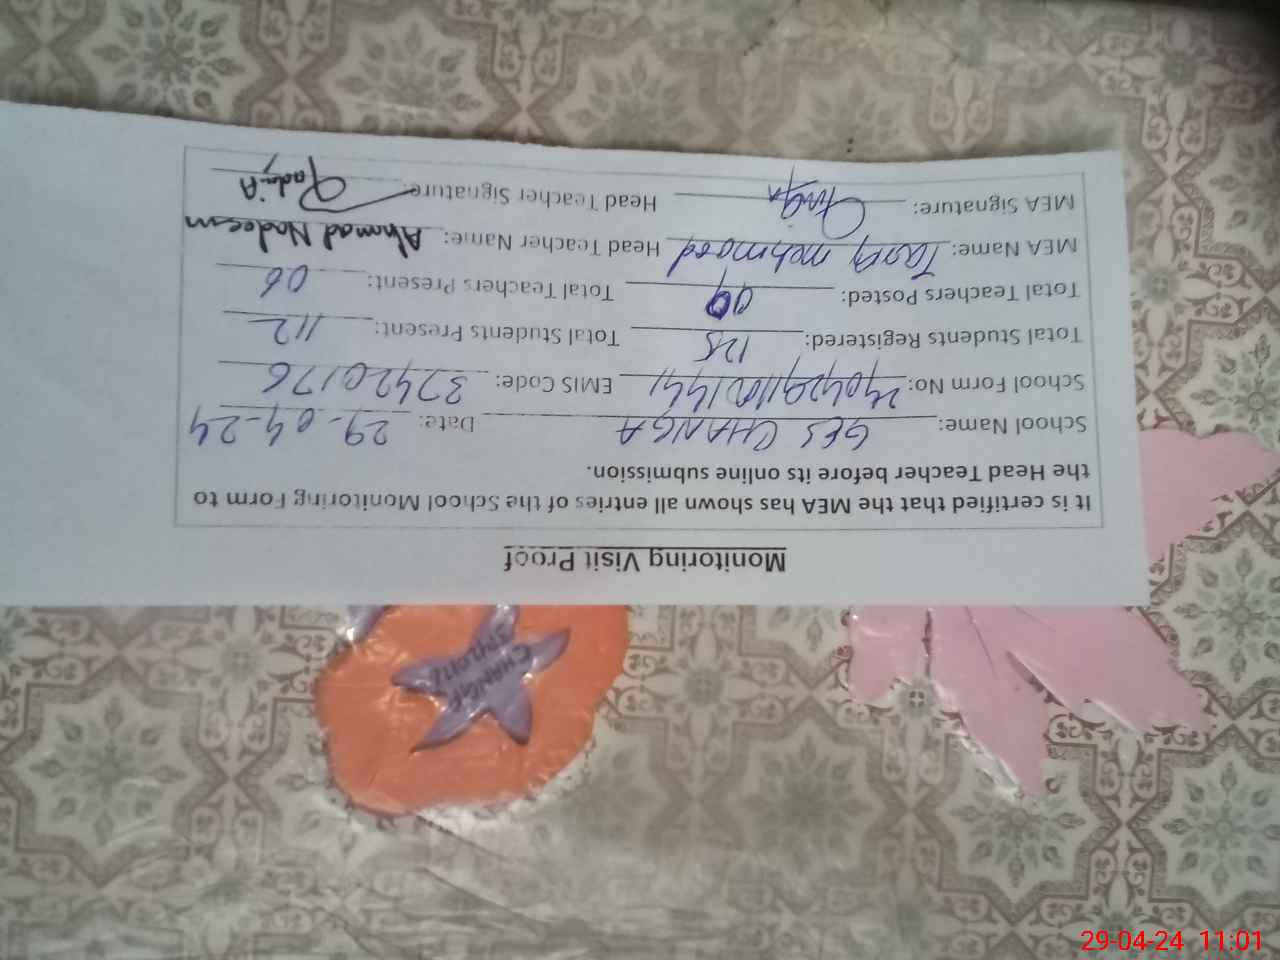 Monitoring Visit Proof
It is certified that the MEA has shown all entries of the School Monitoring Form to
the Head Teacher before its online submission.
School Name: GES CHANGA Date: 29-04-24
School Form No: EMIS Code: 37420176
Total Students Registered: 125 Total Students Present: 112
Total Teachers Posted: Total Teachers Present: 06
MEA Name: Tariq mehmood Head Teacher Name: Ahmad Nadeem
MEA Signature: Head Teacher Signature:
CHANGA
29-04-24 11:01